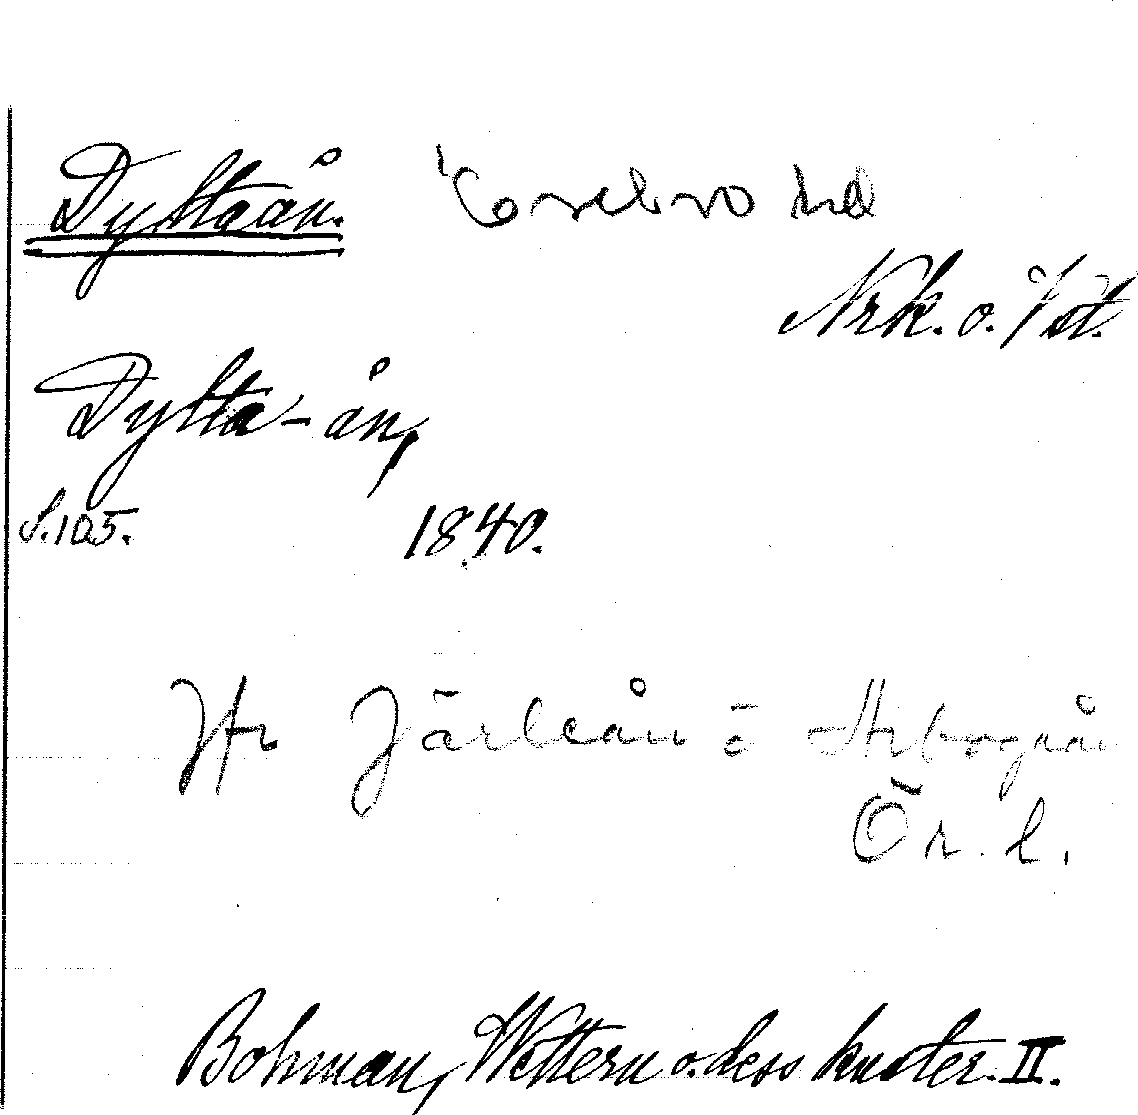 Dyltaån. Örebro hd
Nrk. o. Vst.
Dylta-ån,
S. 105. 1840.
Jfr Järleån o Arbogaån
Ör. l.
Bohman, Wettern o. dess kuster. II.